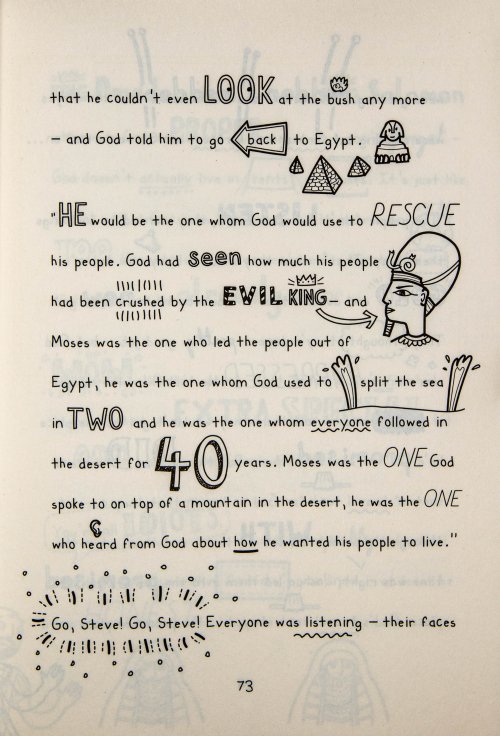 that he couldn't even LOOK at the bush any more
– and God told him to go back to Egypt.
"HE would be the one whom God would use to RESCUE
his people. God had seen how much his people
had been crushed by the EVIL KING – and
Moses was the one who led the people out of
Egypt, he was the one whom God used to split the sea
in TWO and he was the one whom everyone followed in
the desert for 40 years. Moses was the ONE God
spoke to on top of a mountain in the desert, he was the ONE
who heard from God about how he wanted his people to live."
Go, Steve! Go, Steve! Everyone was listening – their faces
73